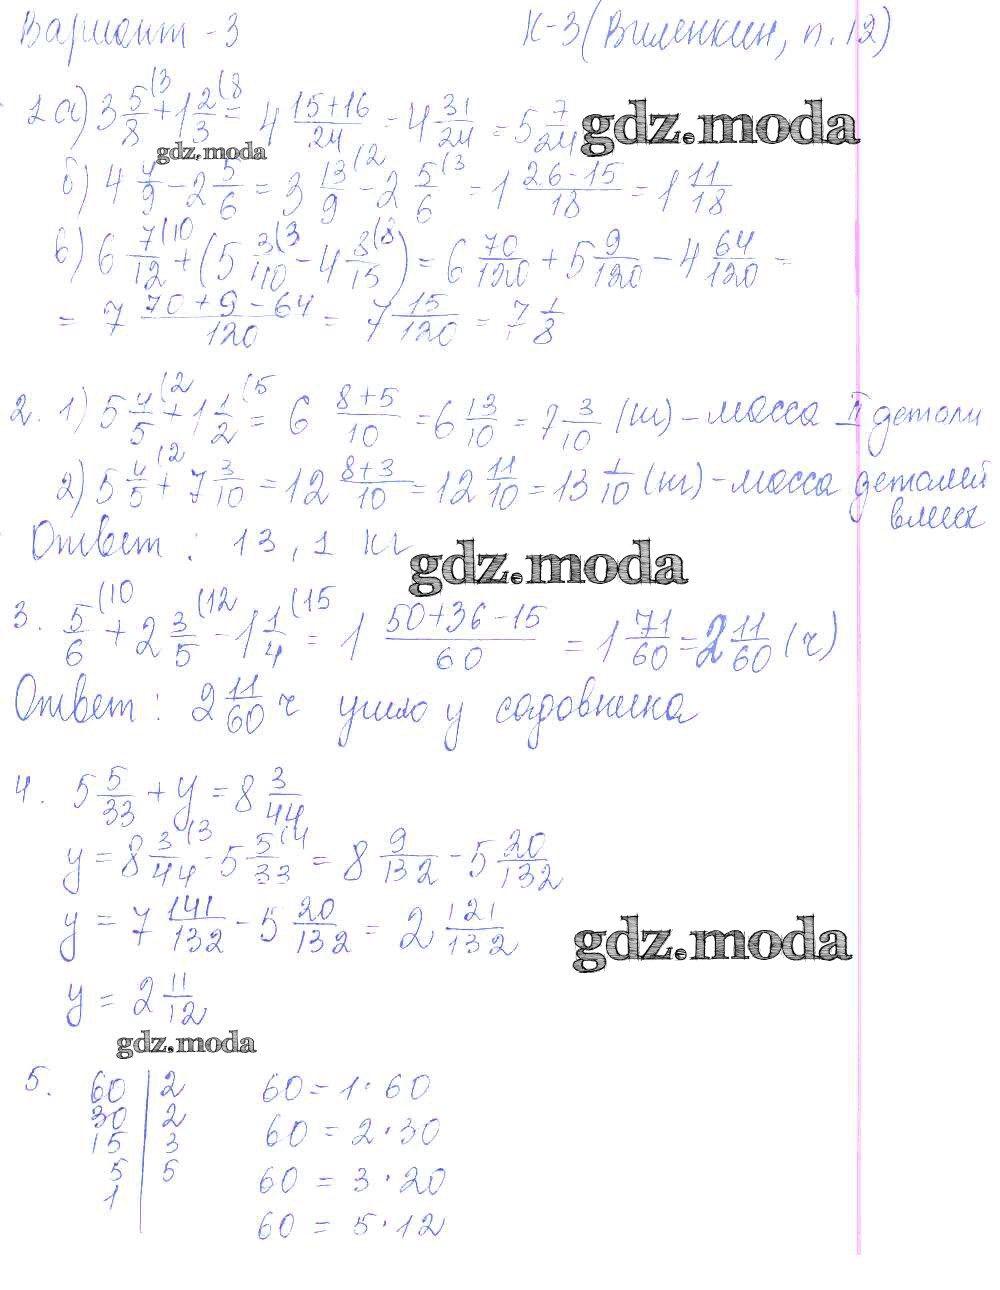 Вариант - 3 К-3 (Виленкин, п. 12)
1 а) 3 5/8 (3 + 1 2/3 (8 = 4 (15+16)/24 = 4 31/24 = 5 7/24
gdz.moda
gdz.moda
б) 4 4/9 - 2 5/6 = 3 13/9 (2 - 2 5/6 (3 = 1 (26-15)/18 = 1 11/18
в) 6 7/12 (10 + (5 3/40 (3 - 4 8/15 (8) = 6 70/120 + 5 9/120 - 4 64/120 =
= 7 (70+9-64)/120 = 7 15/120 = 7 1/8
2. 1) 5 4/5 (2 + 1 1/2 (5 = 6 (8+5)/10 = 6 13/10 = 7 3/10 (кг) - масса II детали
2) 5 4/5 (2 + 7 3/10 = 12 (8+3)/10 = 12 11/10 = 13 1/10 (кг) - масса деталей
вмест
Ответ: 13,1 кг
gdz.moda
3. 5/6 (10 + 2 3/5 (12 - 1 1/4 (15 = 1 (50+36-15)/60 = 1 71/60 = 2 11/60 (ч)
Ответ: 2 11/60 ч ушло у садовника
4. 5 5/33 + y = 8 3/44
y = 8 3/44 (3 - 5 5/33 (4 = 8 9/132 - 5 20/132
y = 7 141/132 - 5 20/132 = 2 121/132
gdz.moda
y = 2 11/12
gdz.moda
5. 60 | 2 60 = 1 · 60
30 | 2 60 = 2 · 30
15 | 3
5 | 5 60 = 3 · 20
1
60 = 5 · 12